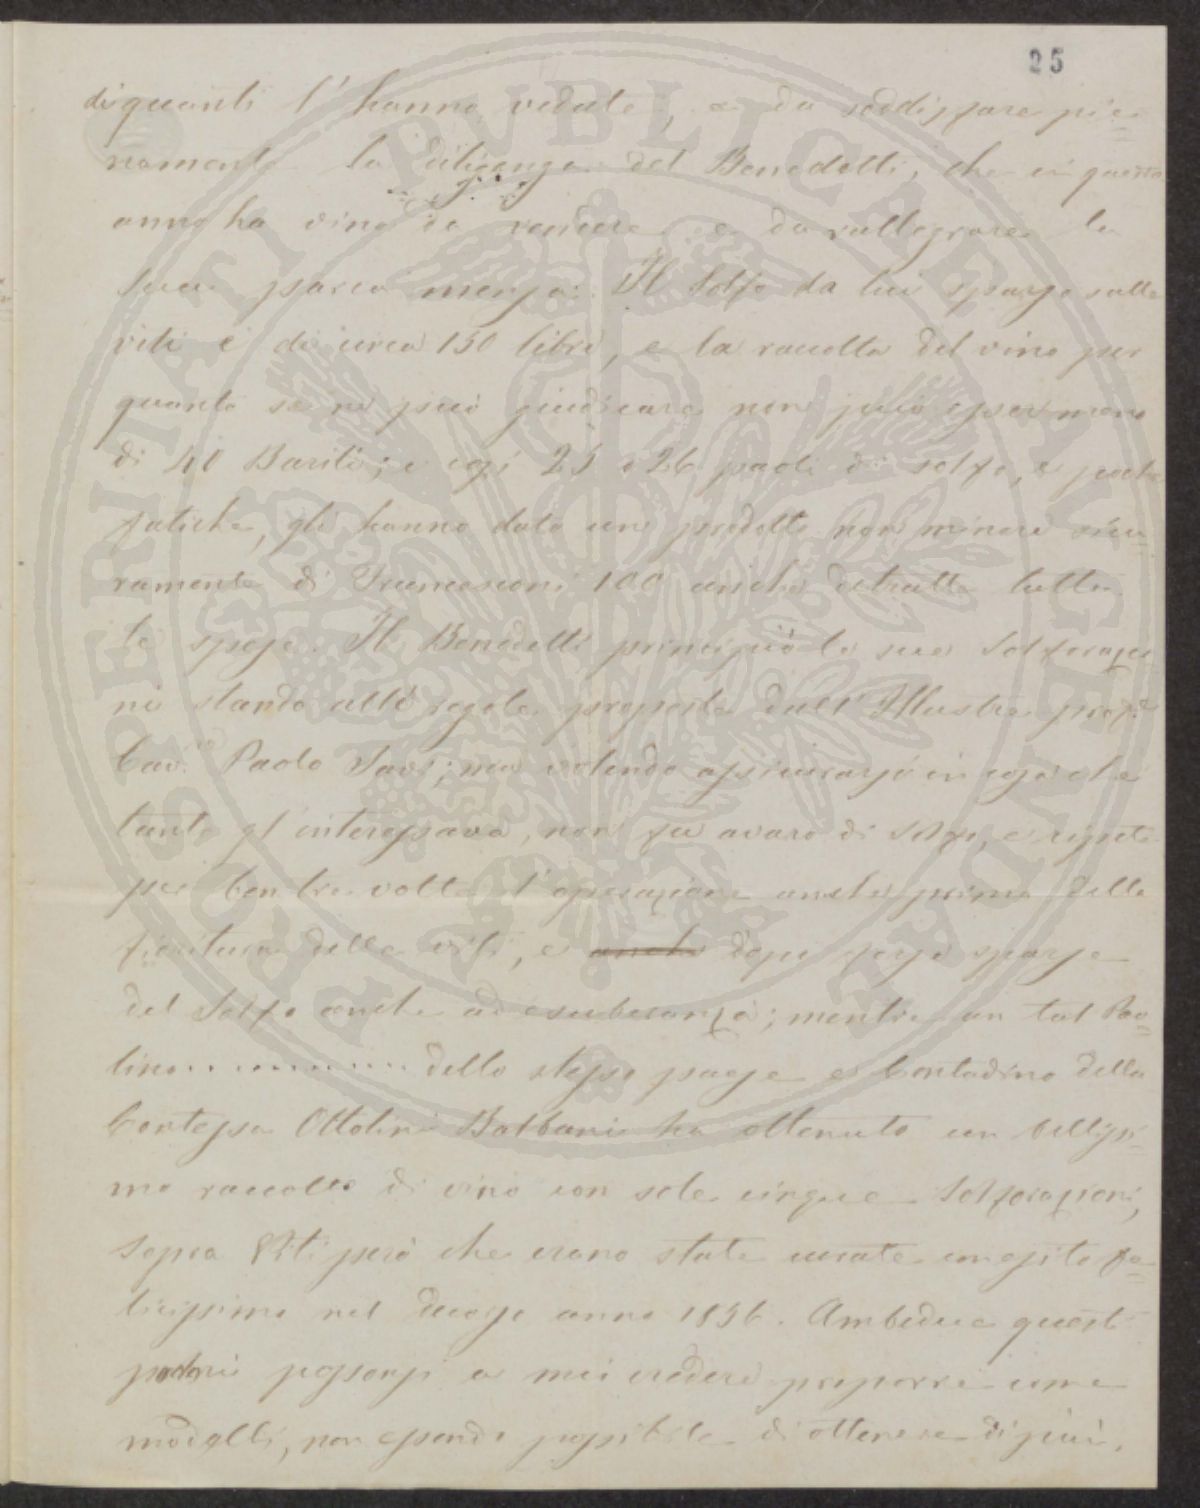 25
di quanti l'hanno vedute, e da soddisfare pie=
namente la diligenza del Benedetti, che in questo
anno ha vino da vendere e da rallegrare la
sua parca mensa. Il Solfo da lui sparso sulle
viti è di circa 150 libre, e la raccolta del vino per
quanto se ne può giudicare non può esser meno
di 40 Barili; e così 25 o 26 paoli di solfo, e poche
fatiche, gli hanno dato un prodotto non minore sicu=
ramente di Francesconi 100 anche detratte tutte
le spese. Il Benedetti principiò le sue Solforazio
ni stando alle regole proposte dall'Illustre prof.e
Cav.re Paolo Savi; ma volendo assicurarsi in cosa che
tanto gl'interessava, non fu avaro di Solfo, e ripetè
per ben tre volte l'operazione anche prima della
fioritura delle viti, e anche dopo forse sparse
del Solfo anche ad esuberanza; mentre un tal Pao=
lino............ dello stesso paese e Contadino della
Contessa Ottolini Balbani ha ottenuto un bellissi=
mo raccolto di vino con sole cinque Solforazioni,
sopra Viti però che erano state curate con esito fe=
licissimo nel decorso anno 1856. Ambedue questi
possonsi a mio credere proporre come
modelli, non essendo possibile di ottenere di più.